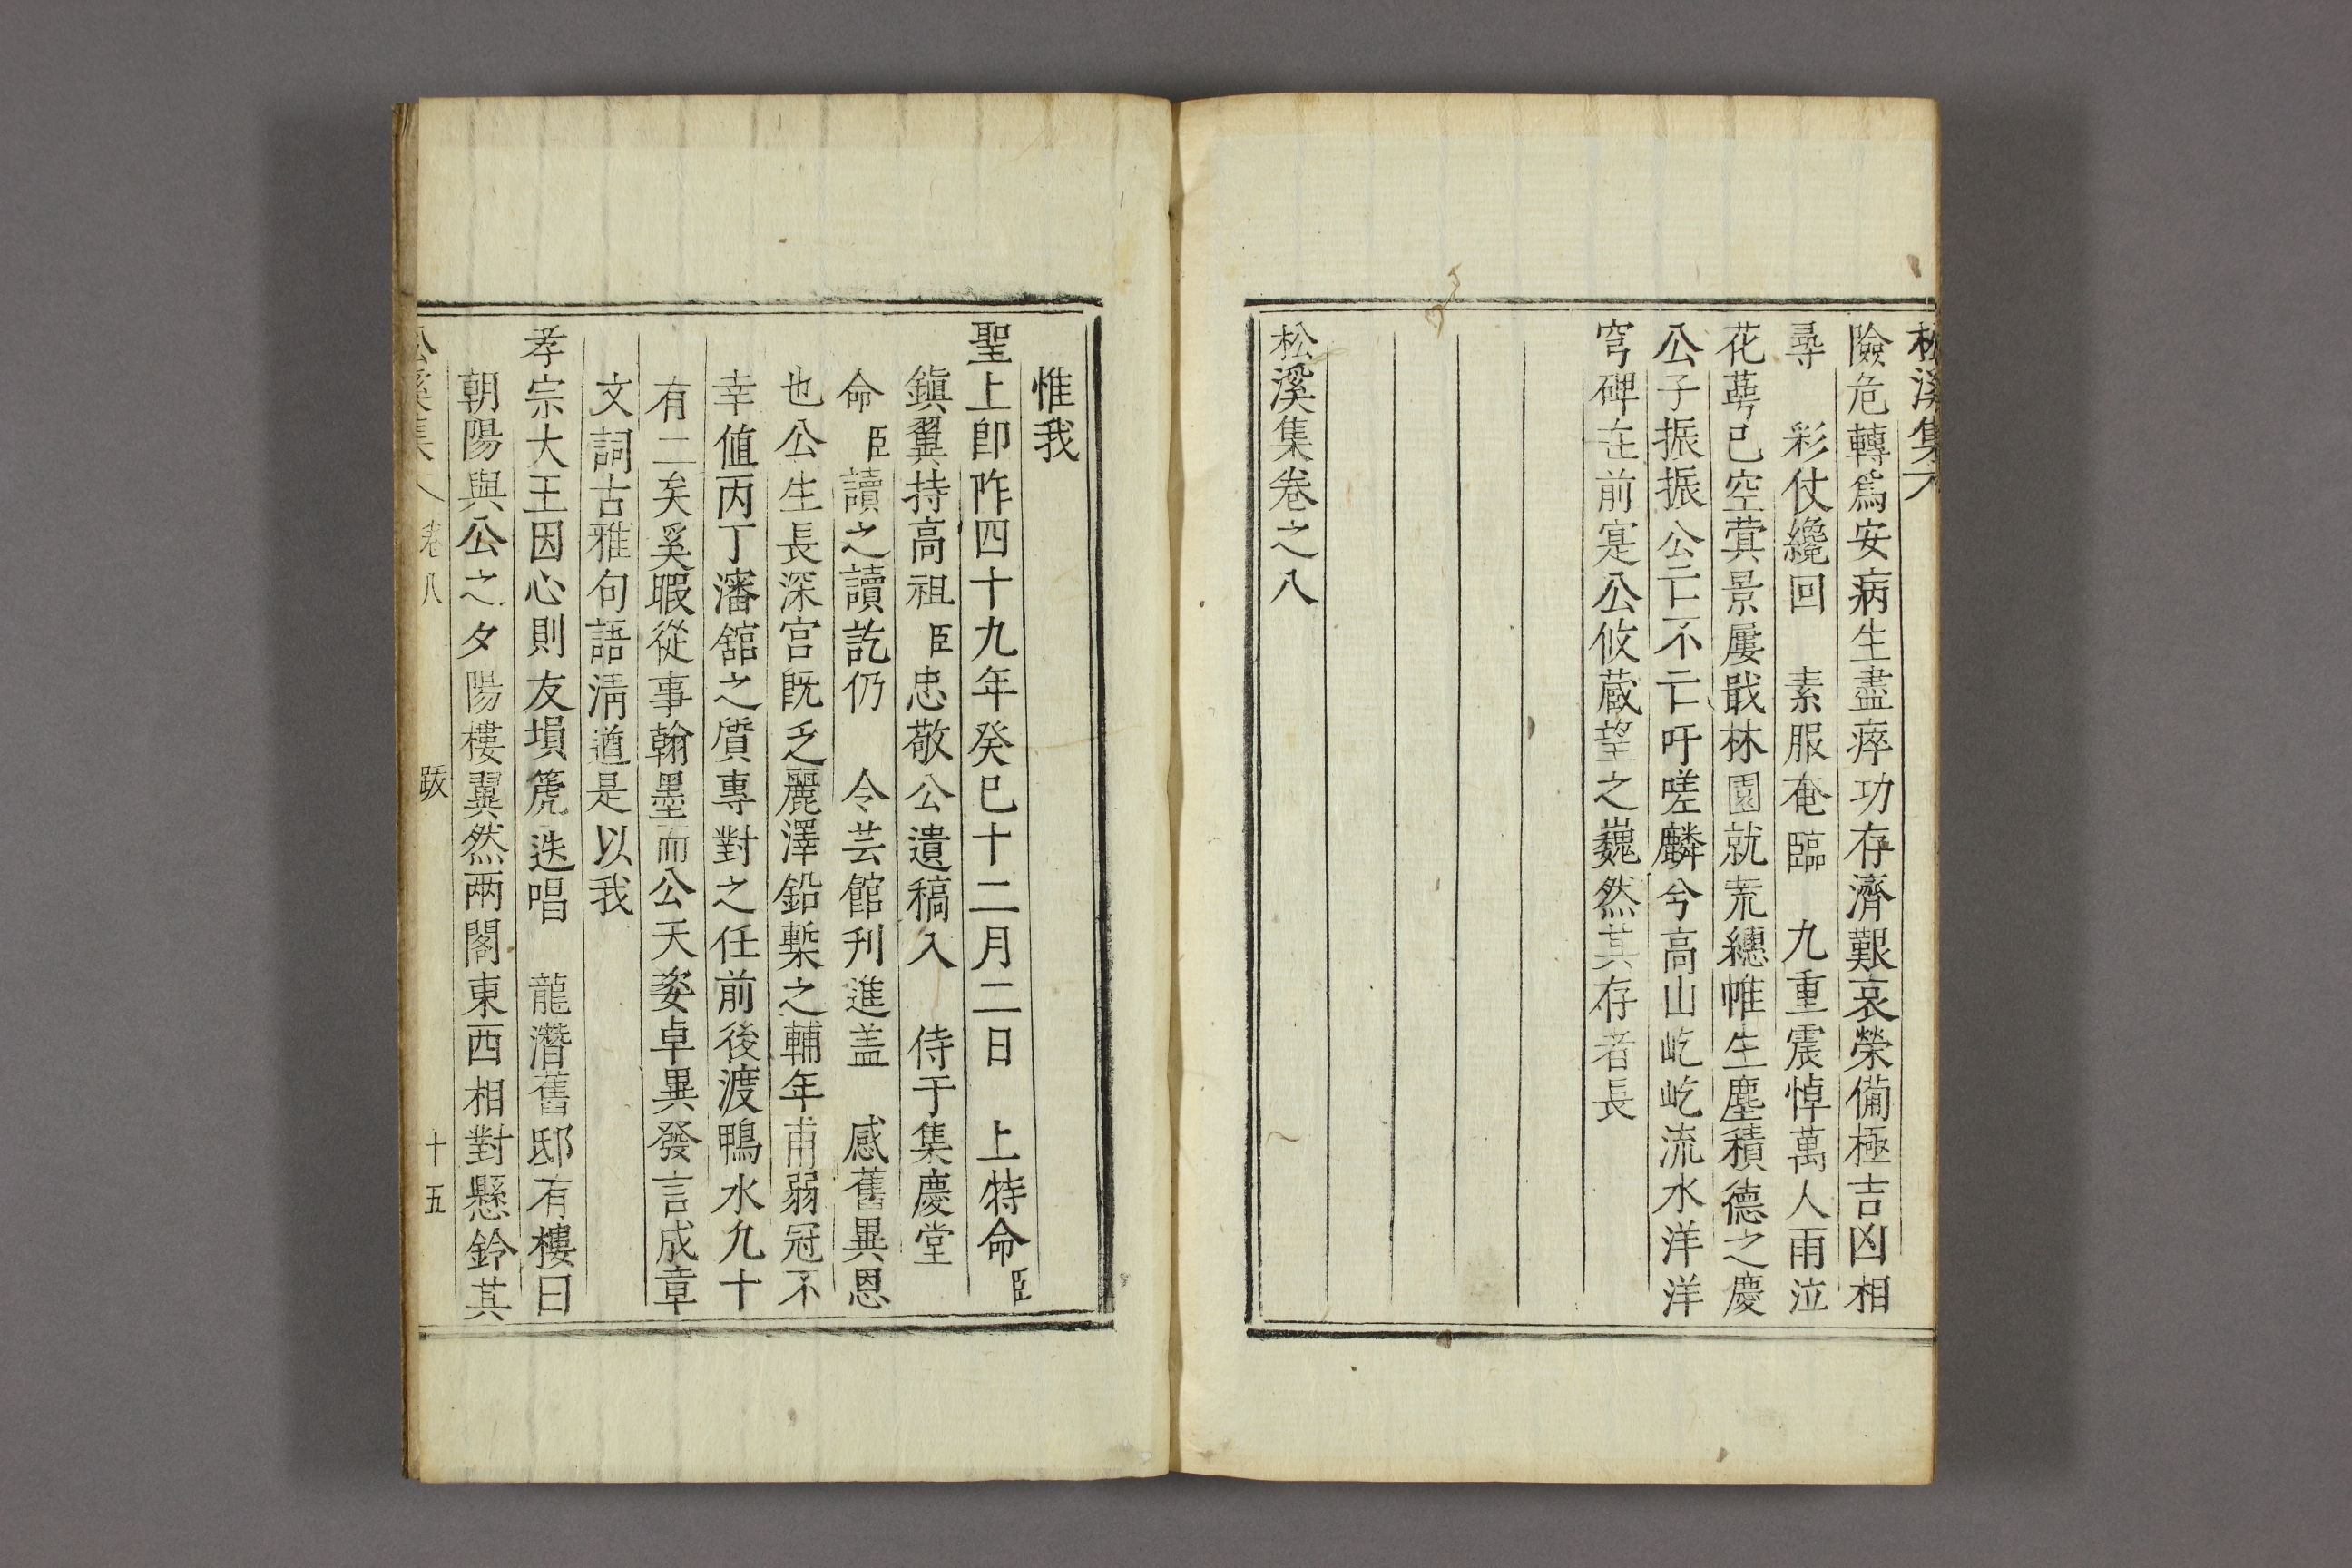 松溪集八
險危轉爲安病生盡瘁功存濟艱哀榮備極吉凶相
尋　彩仗纔回　素服奄臨　九重震悼萬人雨泣
花萼已空蓂景屢戢林園就荒繐帷生塵積德之慶
公子振振公亡不亡吁嗟麟兮高山屹屹流水洋洋
穹碑在前寔公攸蔵望之巍然其存者長
松溪集卷之八
惟我
聖上卽阼四十九年癸巳十二月二日　上特命臣
鎭翼持高祖臣忠敬公遺稿入　侍于集慶堂
命臣讀之讀訖仍　令芸館刊進盖　感舊異恩
也公生長深宮旣乏麗澤鉛槧之輔年甫弱冠不
幸值丙丁瀋舘之質專對之任前後渡鴨水九十
有二矣奚暇從事翰墨而公天姿卓異發言成章
文詞古雅句語淸遒是以我
孝宗大王因心則友塤篪迭唱　龍潛舊邸有樓曰
朝陽與公之夕陽樓翼然兩閣東西相對懸鈴其
松溪集　卷八　跋　十五